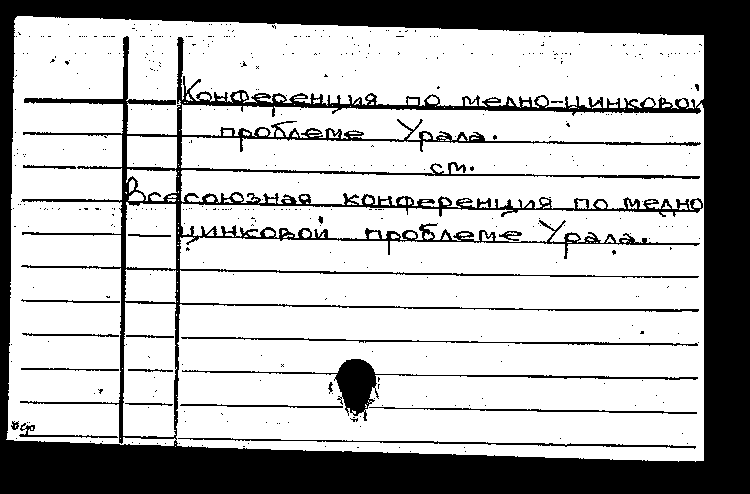 Конференция по медно-цинковой
проблеме Урала.
см.
Всесоюзная конференция по медно
цинковой проблеме Урала.